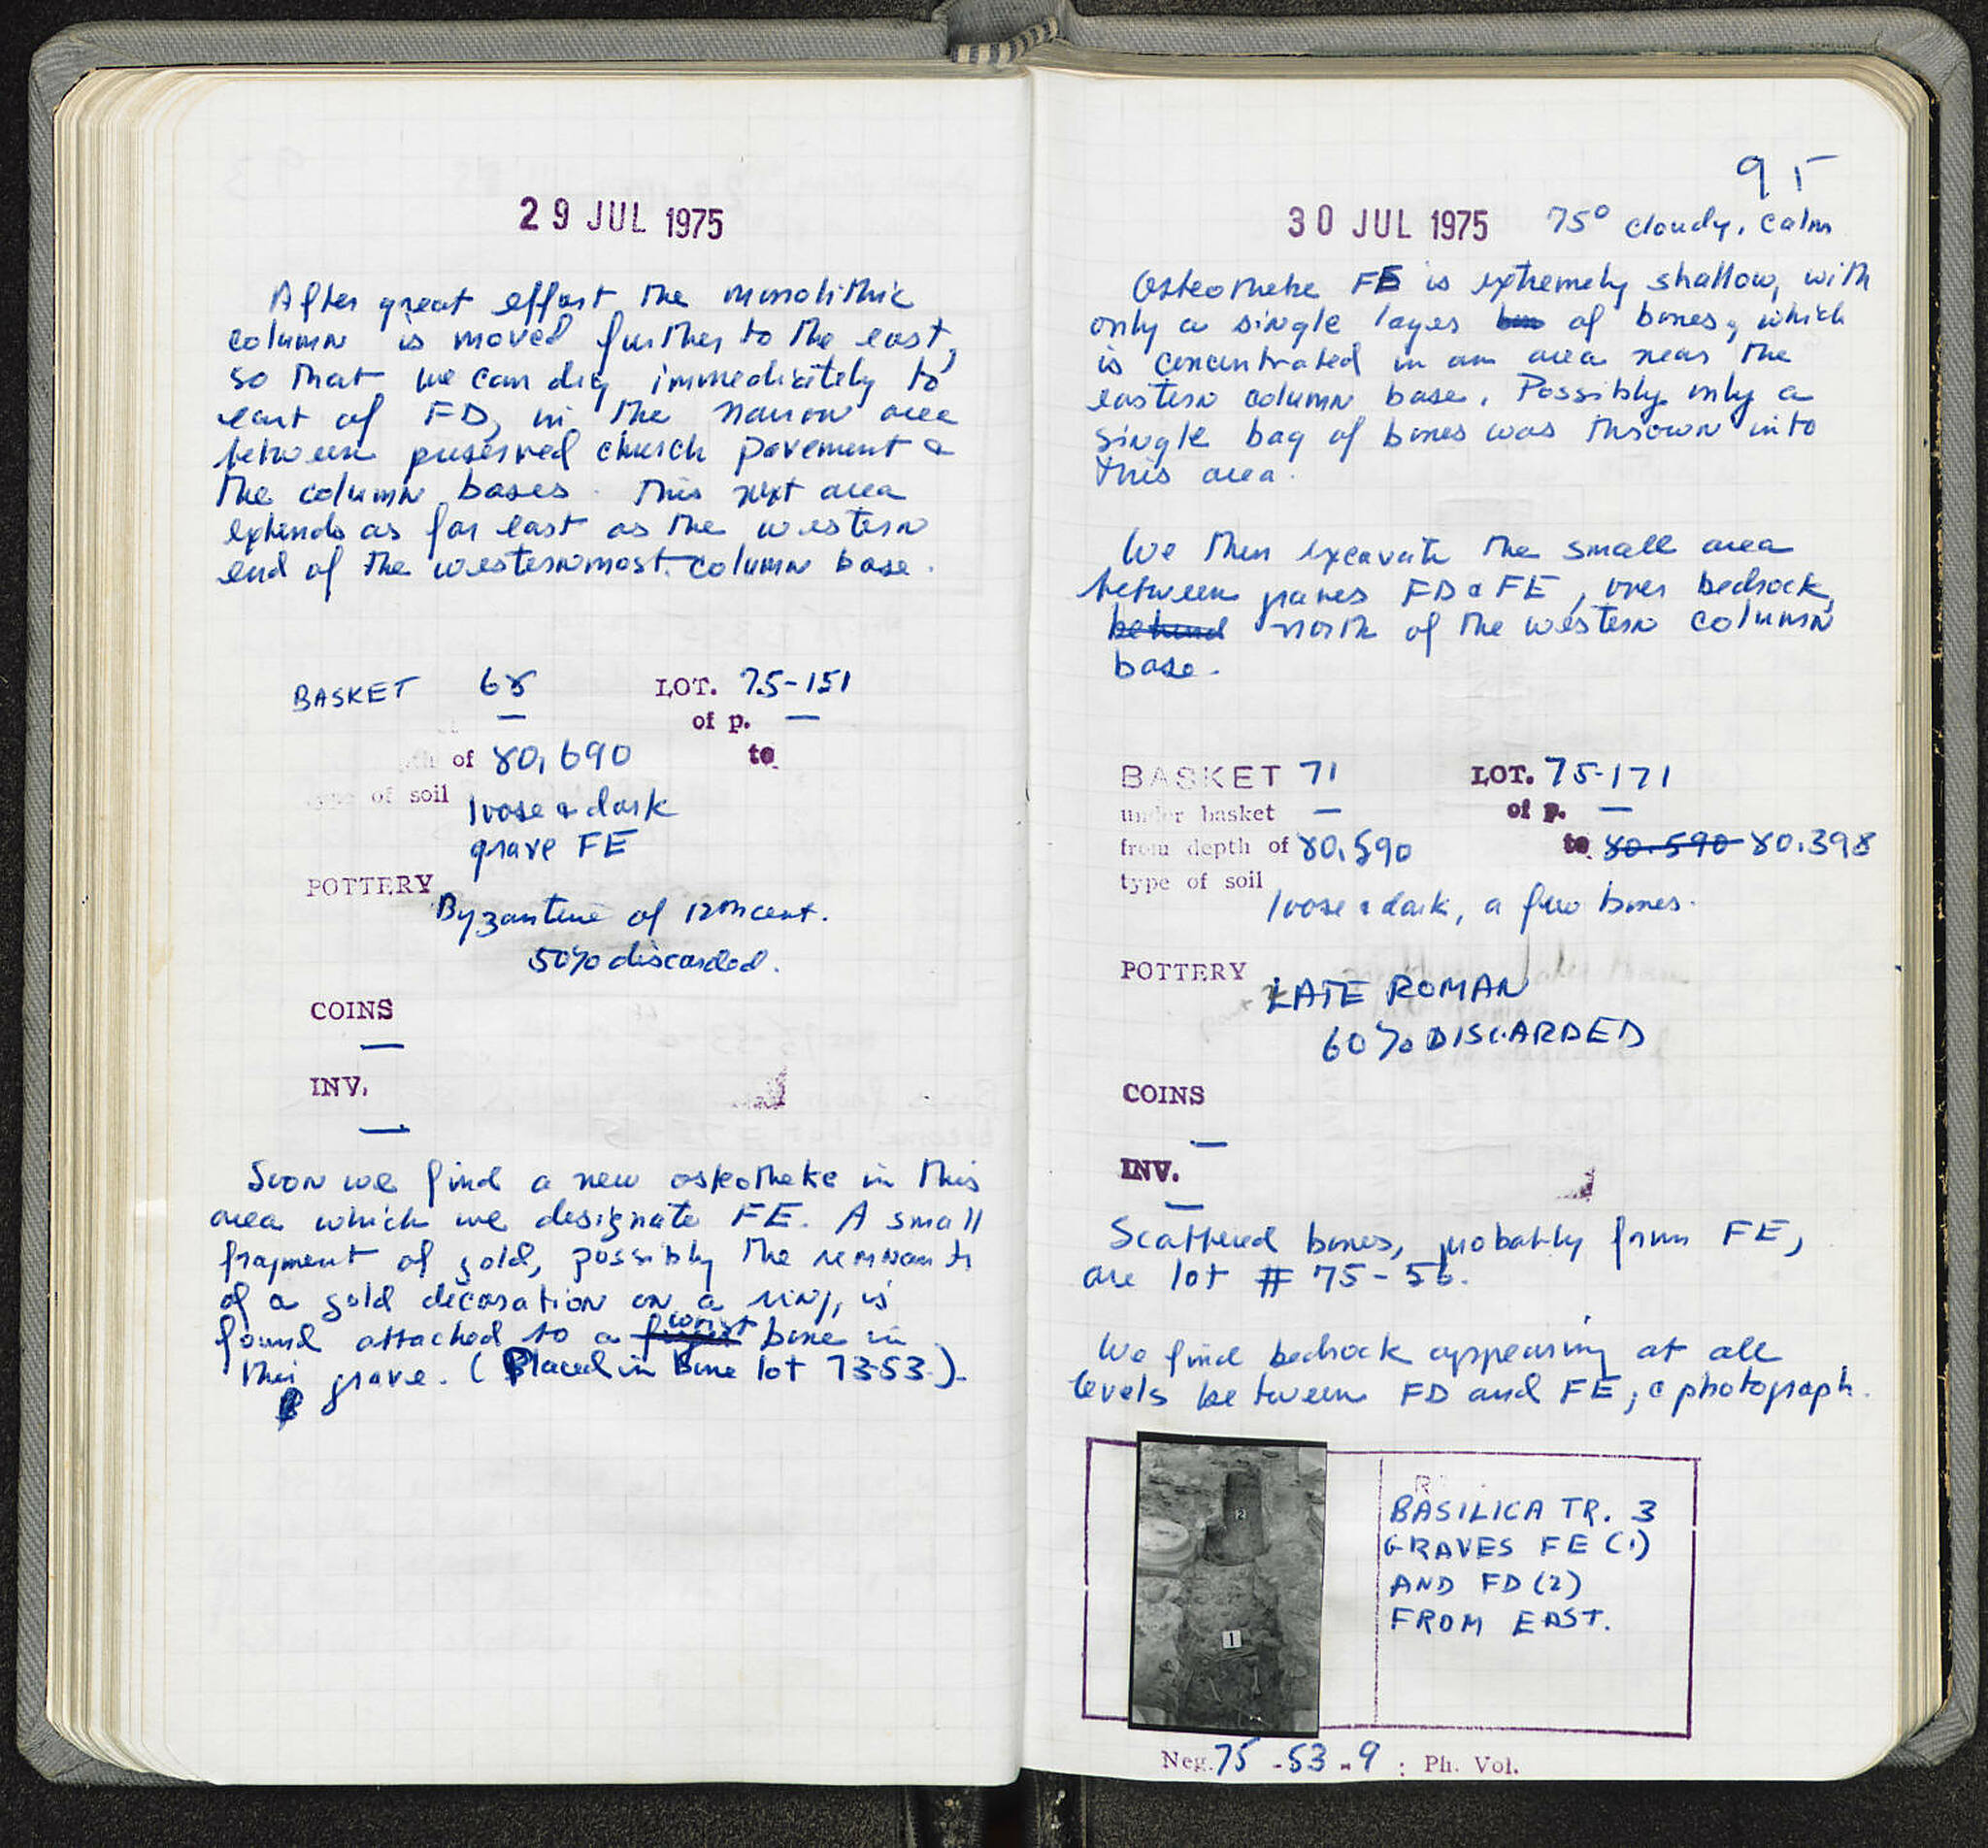 29 JUL 1975
After great effort the monolithic
column is moved further to the east,
so that we can dig immediately to
east of FD, in the narrow area
between preserved church pavement &
the column bases. This next area
extends as far east as the western
end of the westernmost column base.
BASKET 68 LOT. 75-151
of p. —
of 80,690 to
of soil loose & dark
grave FE
POTTERY
Byzantine of 12th cent.
50% discarded.
COINS
—
INV.
—
Soon we find a new osteotheke in this
area which we designate FE. A small
fragment of gold, possibly the remnants
of a gold decoration on a ring, is
found attached to a wrist bone in
this grave. (Placed in Bone lot 7353.)
95
30 JUL 1975 75° cloudy, calm
Osteotheke FE is extremely shallow, with
only a single layer of bones, which
is concentrated in an area near the
eastern column base. Possibly only a
single bag of bones was thrown into
this area.
We then excavate the small area
between graves FD & FE, over bedrock,
behind north of the western column
base.
BASKET 71 LOT. 75-171
under basket — of p. —
from depth of 80,590 to 80.590 80.398
type of soil
loose & dark, a few bones.
POTTERY
LATE ROMAN
60% DISCARDED
COINS
—
INV.
—
Scattered bones, probably from FE,
are lot # 75-56.
We find bedrock appearing at all
levels between FD and FE; c photograph.
2
1
BASILICA TR. 3
GRAVES FE (1)
AND FD (2)
FROM EAST.
Neg. 75-53-9 : Ph. Vol.